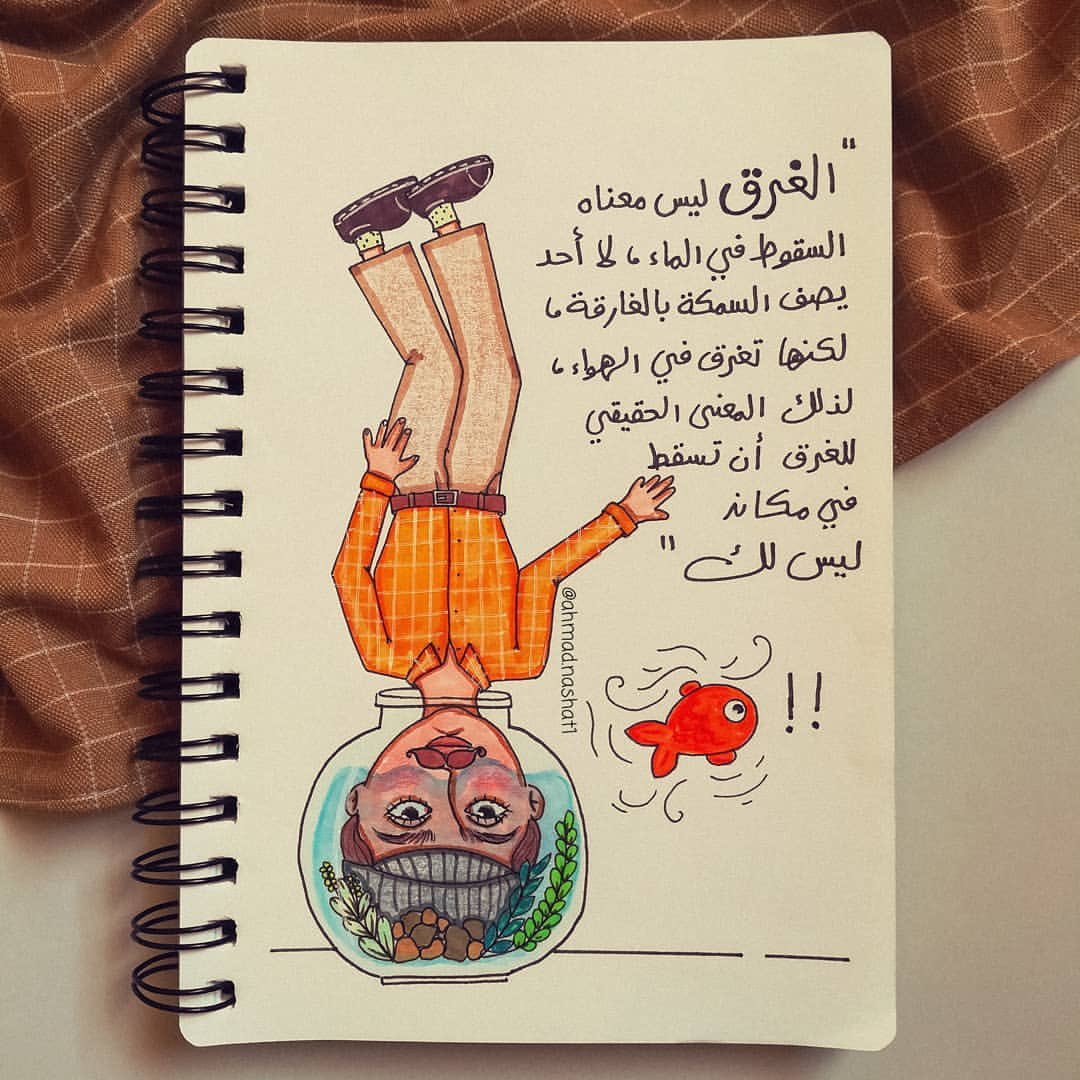 "الغرق ليس معناه
السقوط في الماء، لا أحد
يصف السمكة بالغارقة،
لكنها تغرق في الهواء،
لذلك المعنى الحقيقي
للغرق أن تسقط
في مكان
ليس لك"
@ahmad.nashat1
!!